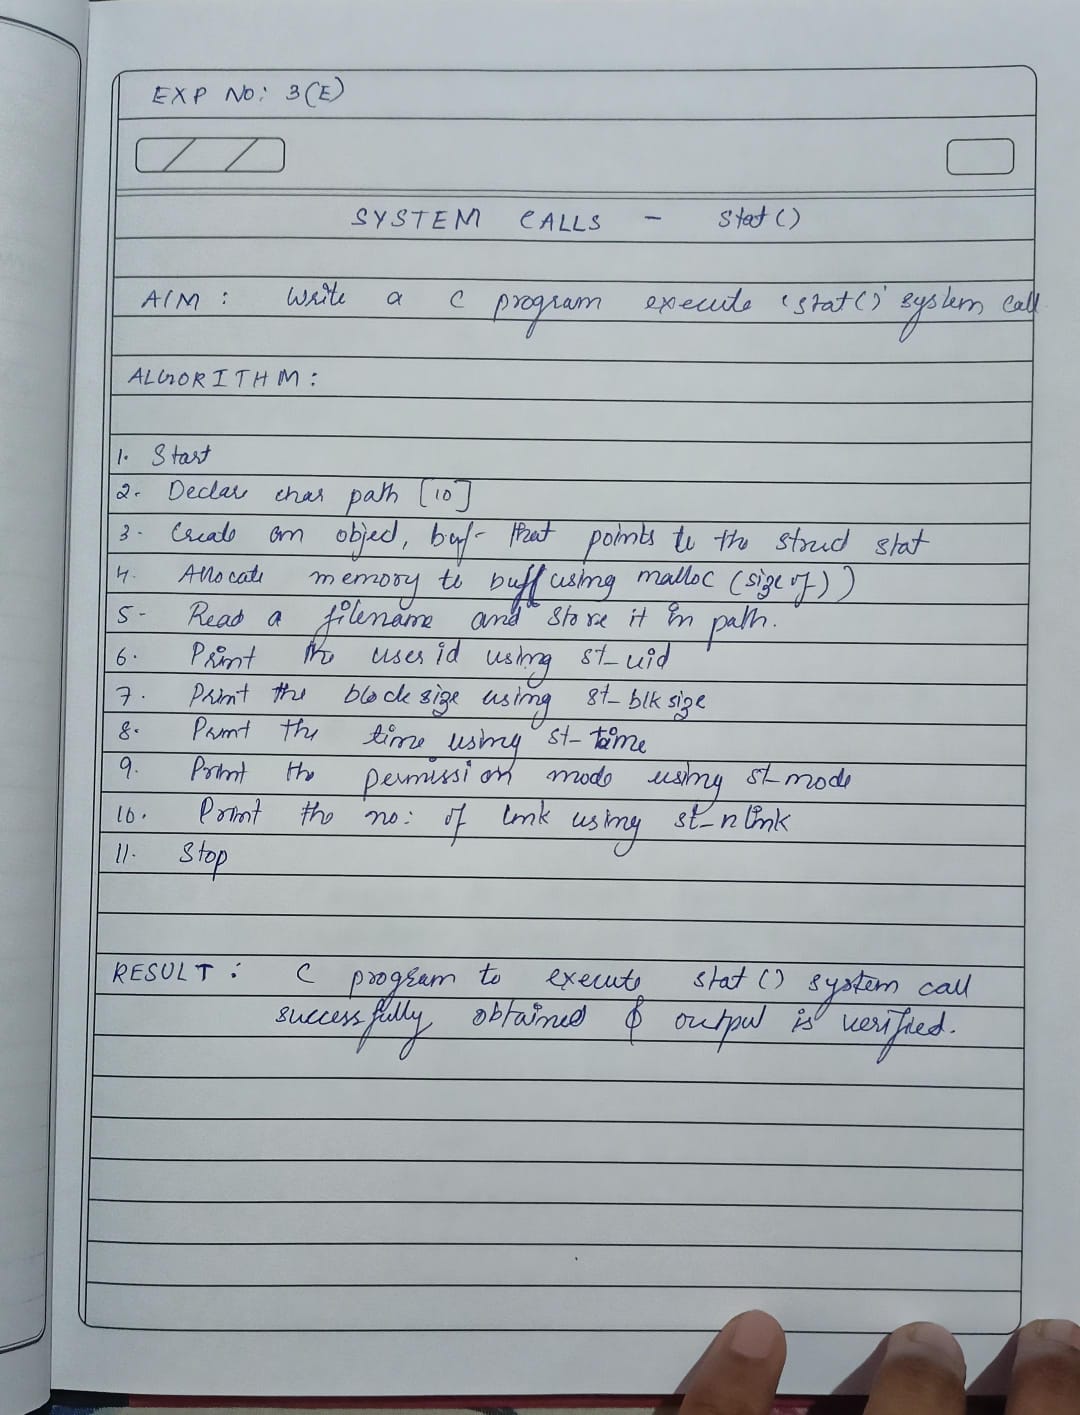 EXP NO: 3(E)
SYSTEM CALLS - stat()
AIM : Write a C program execute 'stat()' system call
ALGORITHM :
1. Start
2. Declare char path [10]
3. Create an object, buf- that points to the struct stat
4. Allocate memory to buff using malloc (size of))
5- Read a filename and store it in path.
6. Print the user id using st_uid
7. Print the block size using st_blk size
8. Print the time using st_time
9. Print the permission mode using st_mode
10. Print the no: of link using st_nlink
11. Stop
RESULT : C program to execute stat() system call
successfully obtained & output is verified.